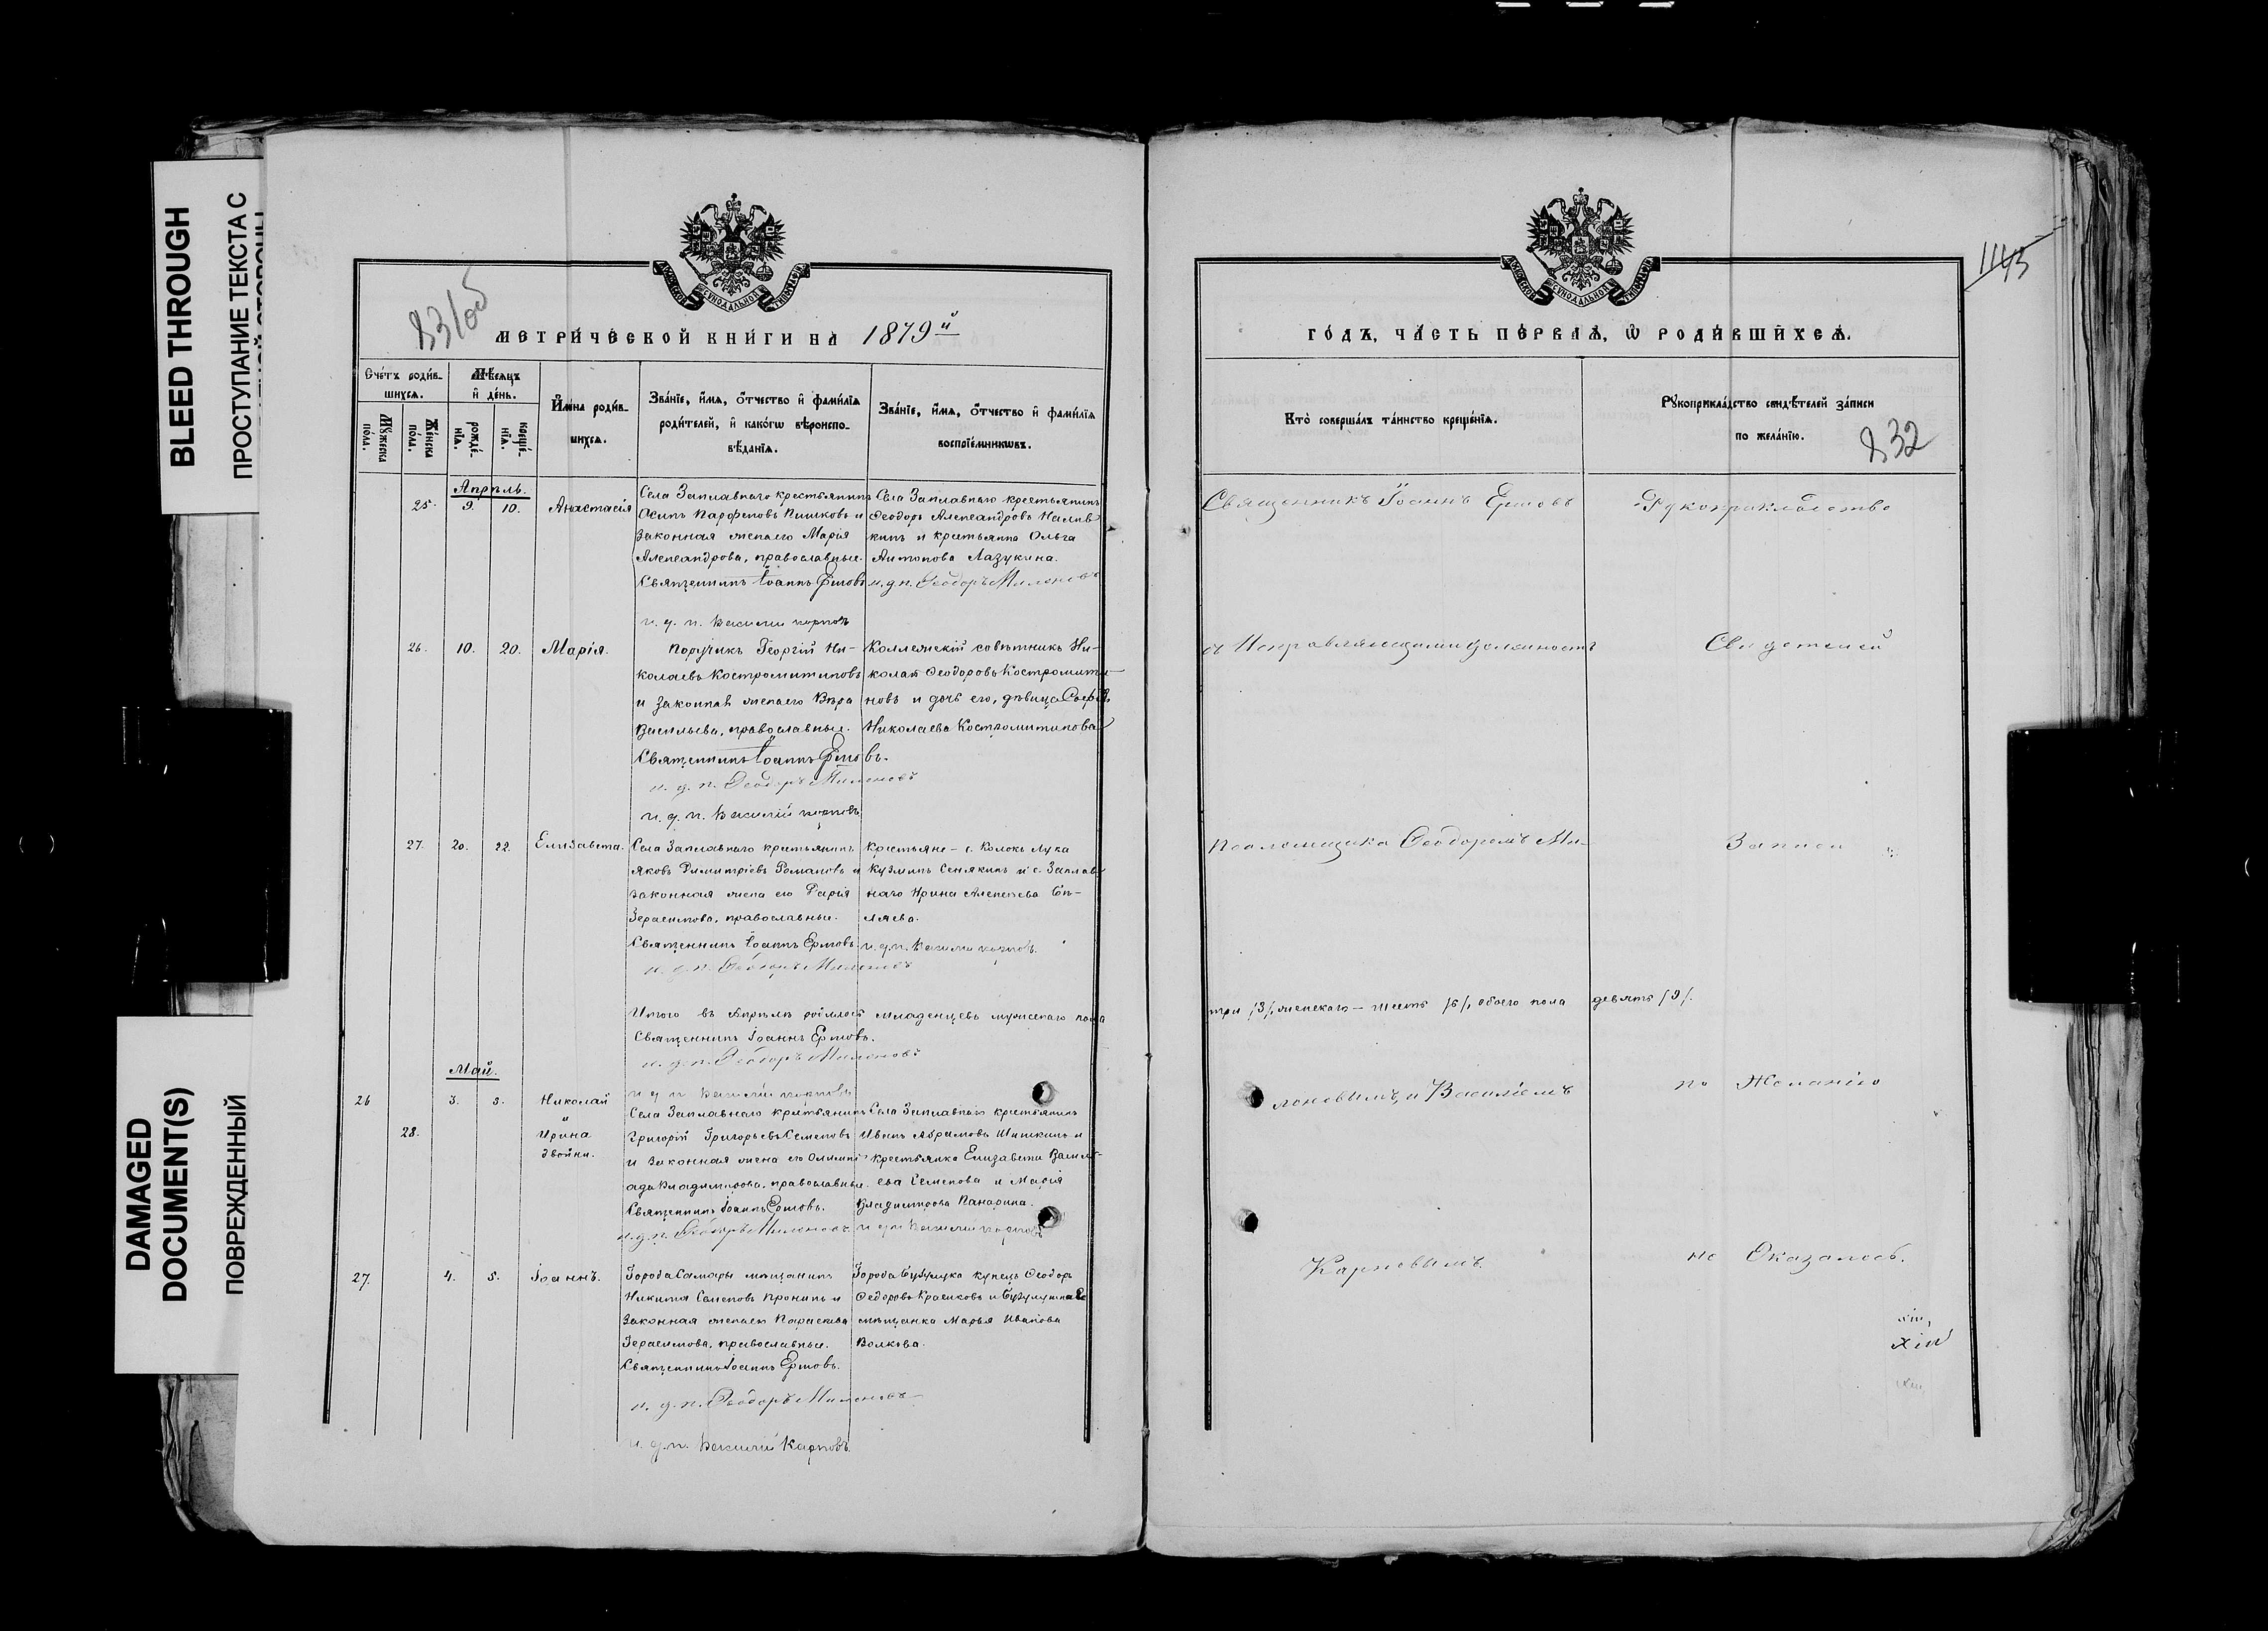 BLEED THROUGH
ПРОСТУПАНИЕ ТЕКСТА С
DAMAGED
DOCUMENT(S)
ПОВРЕЖДЕННЫЙ
831об
МЕТРИЧЕСКОЙ КНИГИ НА 1879й
Счетъ родив-
шихся.
Мужеска пола.
Женска пола.
Мѣсяцъ и день.
рождé-нїѧ.
крещé-нїѧ.
Имена родив-
шихся.
Званіе, имя, отчество и фамилія
родителей, и какогѡ вѣроиспо-
вѣданія.
Званіе, имя, отчество и фамилія
воспріемникѡвъ.
Апрѣль.
25. 9. 10. Анастасія
Села Заплавнаго крестьянинъ
Осипъ Парфеновъ Пишковъ и
законная жена его Марія
Александрова, православные.
Священникъ Іоаннъ Ершовъ
и. д. п. Василий Карповъ
Села Заплавнаго крестьянинъ
Феодоръ Александровъ Налив
кинъ и крестьянка Ольга
Антонова Лазукина.
и. д. п. Феодоръ Милоновъ
26. 10. 20. Марія.
Поручикъ Георгій Ни-
колаевъ Костромитиновъ
и законная жена его Вѣра
Васильева, православные.
Священникъ Іоаннъ Ершовъ.
и. д. п. Феодоръ Милоновъ
и. д. п. Василій Карповъ
Коллежскій совѣтникъ Ни-
колай Феодоровъ Костромити-
новъ и дочь его, дѣвица Софья
Николаева Костромитинова
27. 20. 22. Елизавета.
Села Заплавнаго крестьянинъ
Яковъ Димитріевъ Романовъ и
законная жена его Дарія
Герасимова, православные.
Священникъ Іоаннъ Ершовъ.
и. д. п. Феодоръ Милоновъ
Крестьяне – с. Колокъ Лука
Кузминъ Сенякинъ и с. Заплав-
наго Ирина Алексеева Бѣ-
ляева.
и. д. п. Василий Карповъ.
Итого въ Апрѣлѣ родилось младенцевъ мужескаго пола
Священникъ Іоаннъ Ершовъ.
и. д. п. Феодоръ Милоновъ
и д п Василій Карповъ
Май.
26 3. 5. Николай
и
28. Ирина
двойни.
Села Заплавнаго крестьянинъ
Григорій Григорьевъ Семеновъ
и законная жена его Олимпі
ада Владимирова, православные.
Священникъ Іоаннъ Ершовъ.
и. д. п. Феодоръ Милоновъ
Села Заплавнаго крестьянинъ
Иванъ Абрамовъ Шишкинъ и
крестьянка Елизавета Василь-
ева Семенова и Марія
Владимирова Панарина.
и д п Василий Карповъ
27. 4. 5. Іоаннъ.
Города Самары мѣщанинъ
Никита Семеновъ Пронинъ и
законная жена его Параскева
Герасимова, православные.
Священникъ Іоаннъ Ершовъ.
и. д. п. Феодоръ Милоновъ
и. д. п. Василий Карповъ
Города Бузулука купецъ Феодоръ
Федоровъ Красиковъ и Бузулукская
мѣщанка Марья Иванова
Волкова.
1145
ГОДЪ, ЧАСТЬ ПЕРВАЯ, Ѡ РОДИВШИХСЯ.
Кто совершалъ таинство крещенія.
Рукоприкладство свидѣтелей записи
по желанію.
832
Священникъ Іоаннъ Ершовъ
съ Исправляющими должность
Псаломщика Феодоромъ Ми-
три /3/, женскаго – шесть /6/, обоего пола девять /9/.
лоновымъ, и Василіемъ
Карповымъ.
Рукоприкладство
Свидетелей
Записи
по Желанію
не Оказалось.
xiii